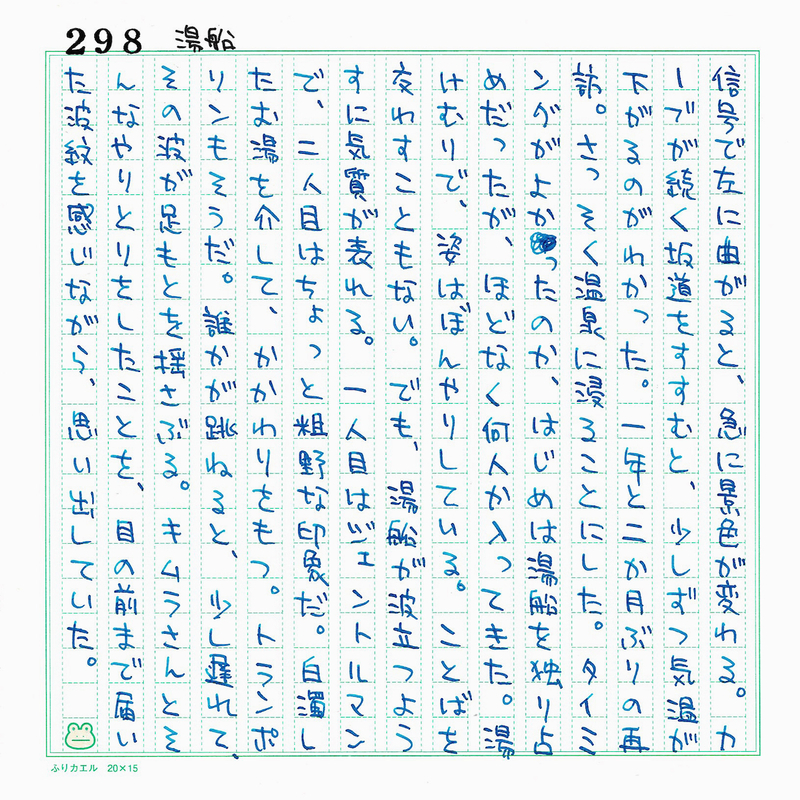 298 湯船
信号で左に曲がると、急に景色が変わる。カ
ーブが続く坂道をすすむと、少しずつ気温が
下がるのがわかった。一年と二か月ぶりの再
訪。さっそく温泉に浸ることにした。タイミ
ングがよかったのか、はじめは湯船を独り占
めだったが、ほどなく何人か入ってきた。湯
けむりで、姿はぼんやりしている。ことばを
交わすこともない。でも、湯船が波立つよう
すに気質が表れる。一人目はジェントルマン
で、二人目はちょっと粗野な印象だ。白濁し
たむ湯を介して、かかわりをもつ。トランポ
リンもそうだ。誰かが跳ねると、少し遅れて、
その波が足もとを揺さぶる。キムラさんとそ
んなやりとりをしたことを、目の前まで届い
た波紋を感じながら、思い出していた。
ふりカエル 20×15